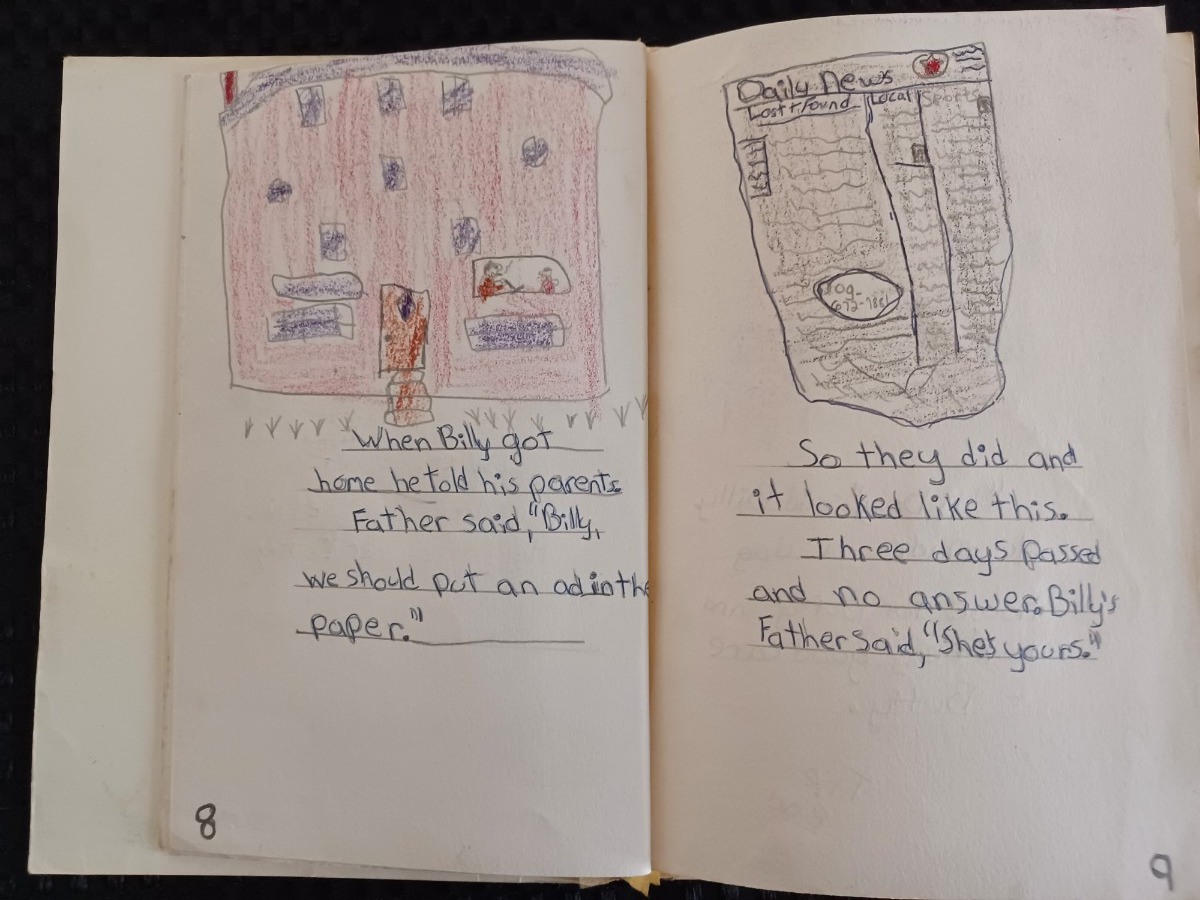 When Billy got
home he told his parents
Father said, "Billy,
we should put an ad in the
paper."
8
Daily News
Lost + Found
Local
Sports
Dog-
So they did and
it looked like this.
Three days passed
and no answer. Billy's
Father said, "She's yours."
9